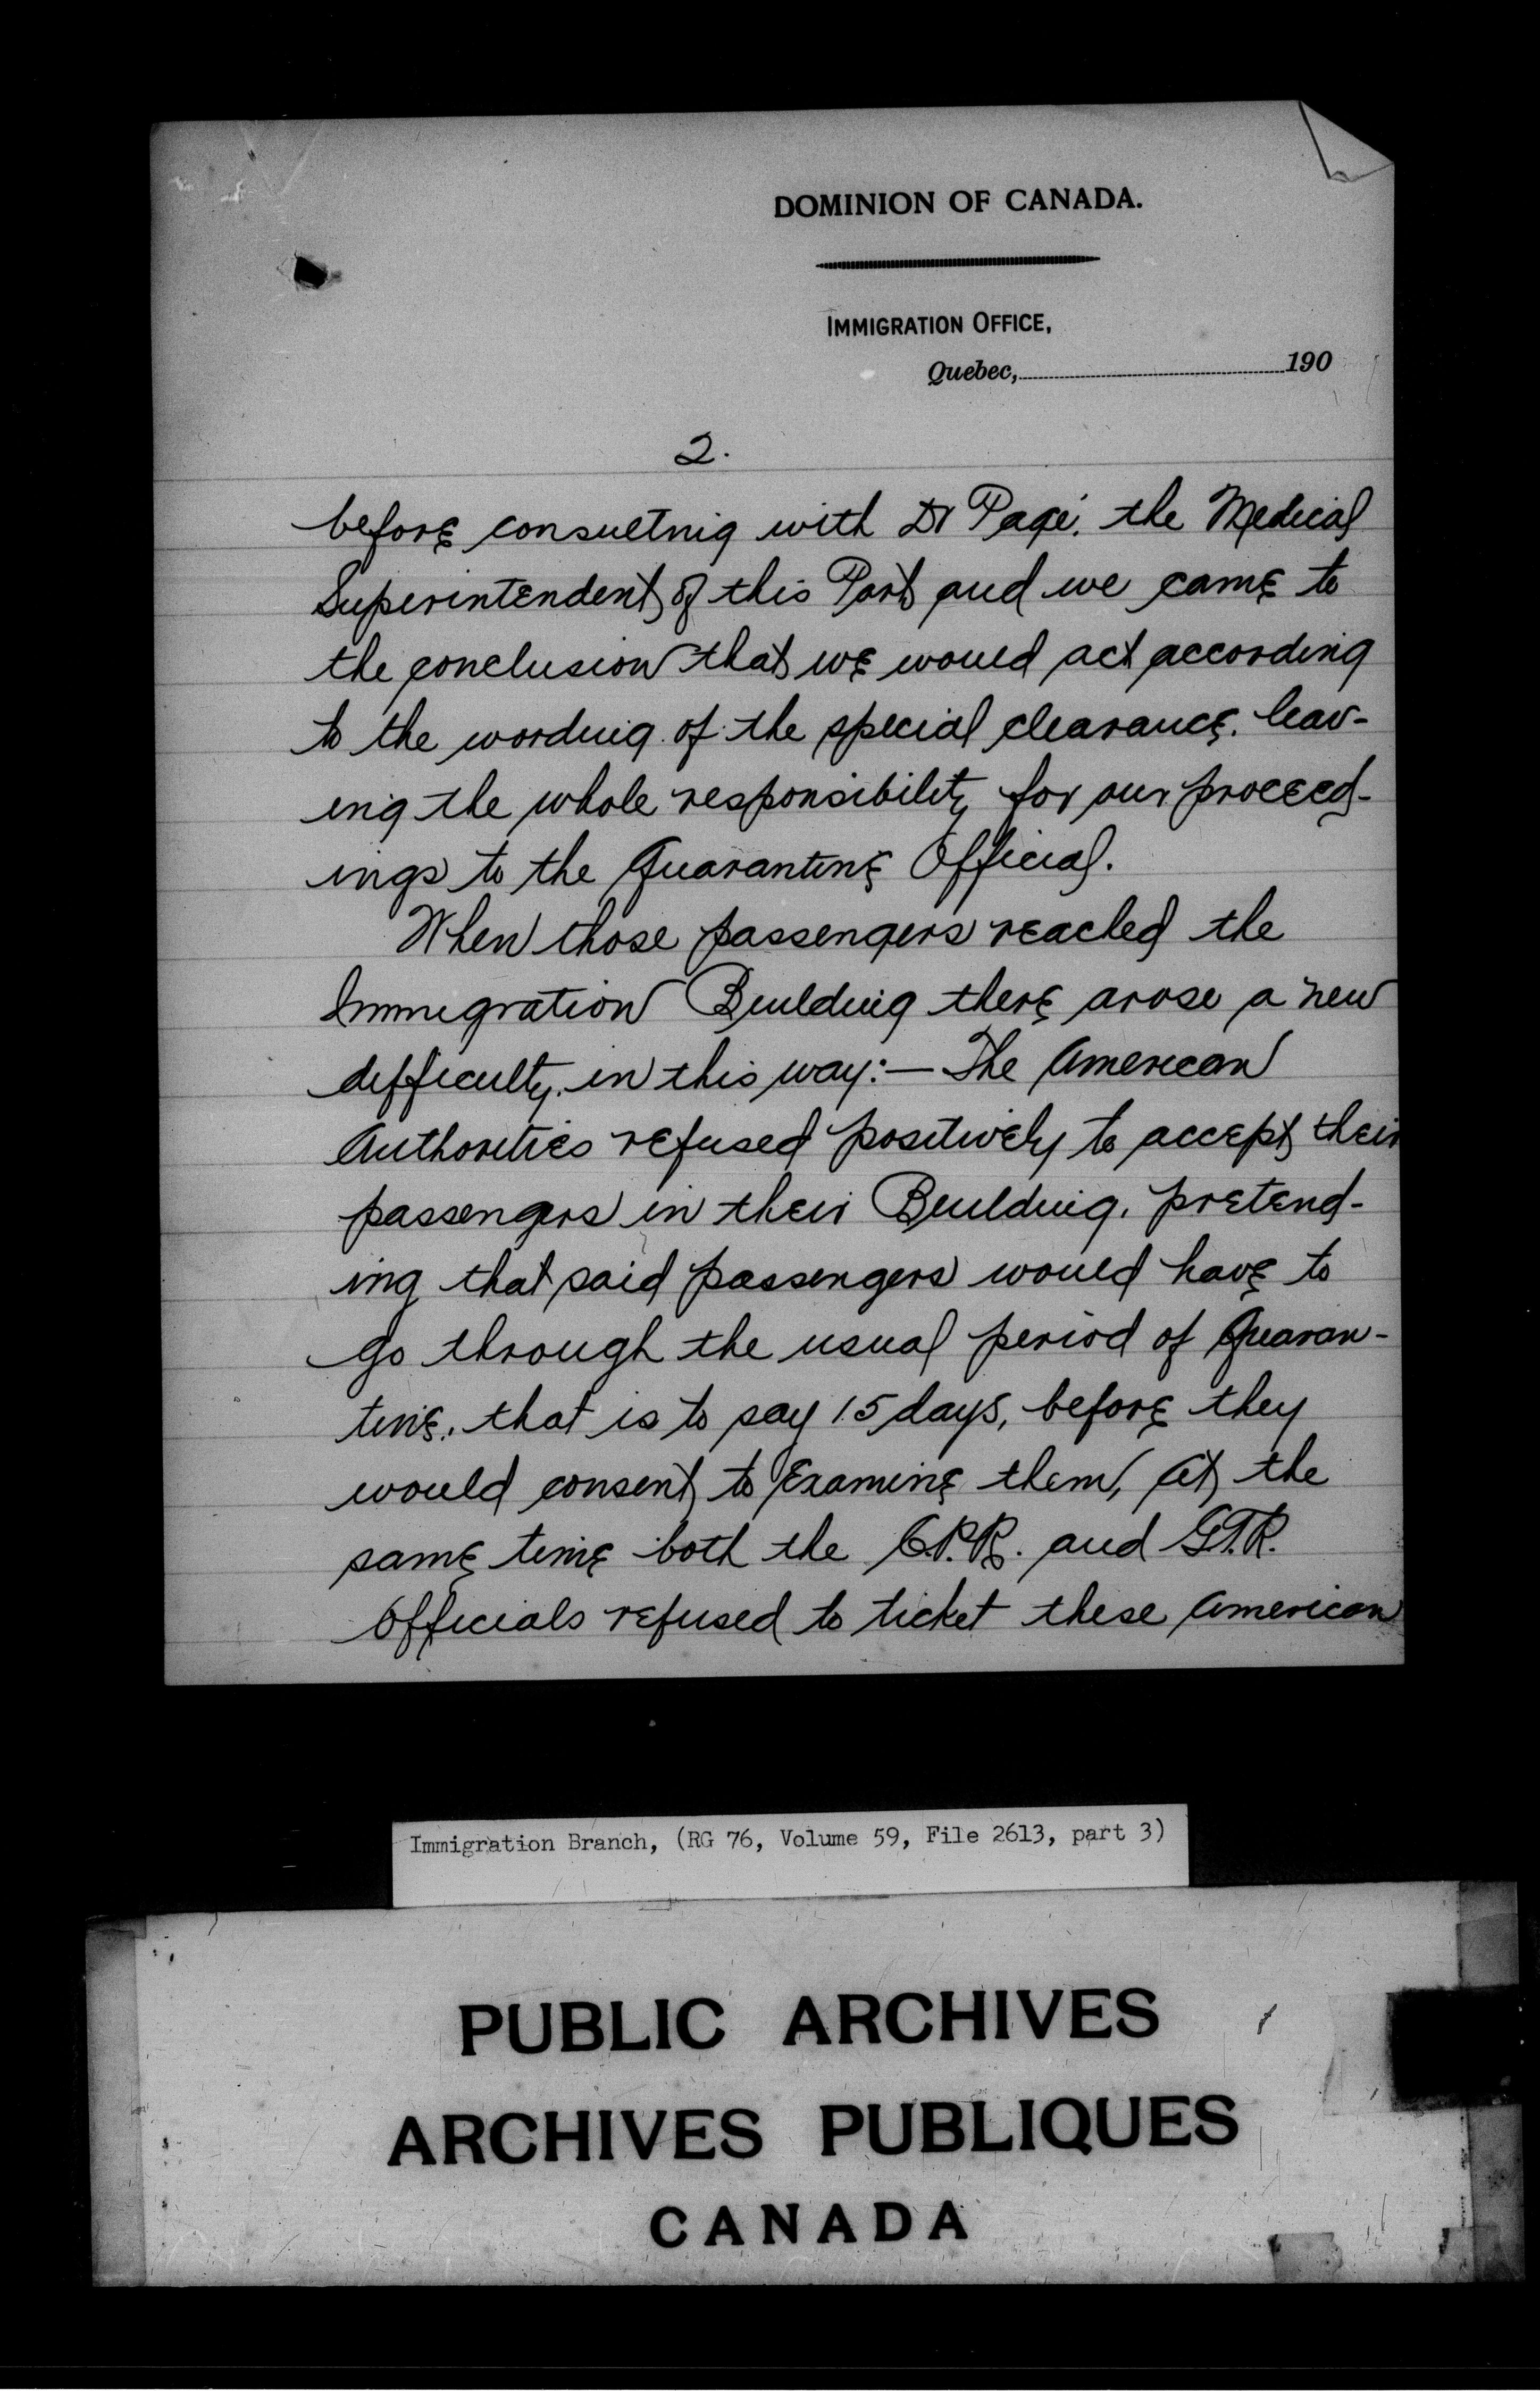 DOMINION OF CANADA.
IMMIGRATION OFFICE,
Quebec, 190
2.
before consulting with Dr Pagé, the Medical
Superintendent of this Port and we came to
the conclusion that we would act according
to the wording of the special clearance, leav-
ing the whole responsibility for our proceed-
ings to the Quarantine Official.
When those passengers reached the
Immigration Building there arose a new
difficulty, in this way:— The American
Authorities refused positively to accept their
passengers in their Building, pretend-
ing that said passengers would have to
go through the usual period of Quaran-
tine, that is to say 15 days, before they
would consent to Examine them, At the
same time both the C.P.R. and G.T.R.
Officials refused to ticket these American
Immigration Branch, (RG 76, Volume 59, File 2613, part 3)
PUBLIC ARCHIVES
ARCHIVES PUBLIQUES
CANADA